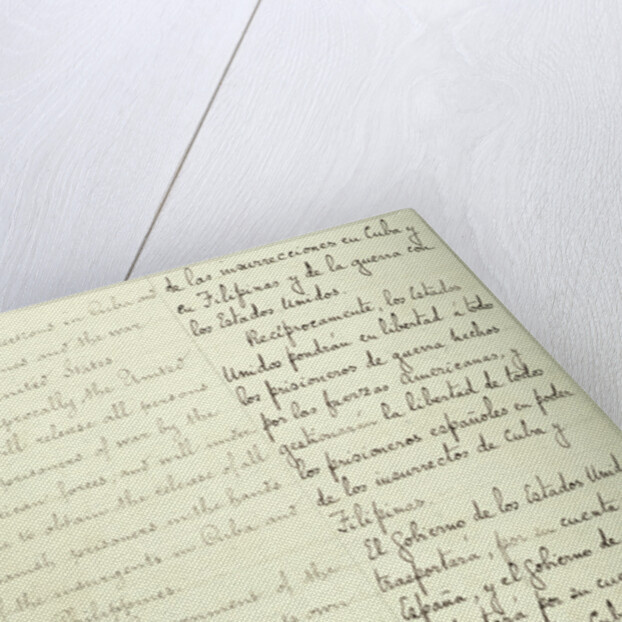 in Cuba and
and the war
United States
the United
will release all persons
prisoners of war by the
forces, and will under
to obtain the release of all
prisoners in the hands
the insurgents in Cuba and
Philippines.
of the
own
de las insurrecciones en Cuba y
en Filipinas y de la guerra con
los Estados Unidos.
Recíprocamente, los Estados
Unidos pondrán en libertad á todos
los prisioneros de guerra hechos
por las fuerzas Americanas, y
gestionarán la libertad de todos
los prisioneros españoles en poder
de los insurrectos de Cuba y
Filipinas.
El Gobierno de los Estados Unid
trasportará, por su cuenta
España, y el Gobierno de
por su cue
Cuba